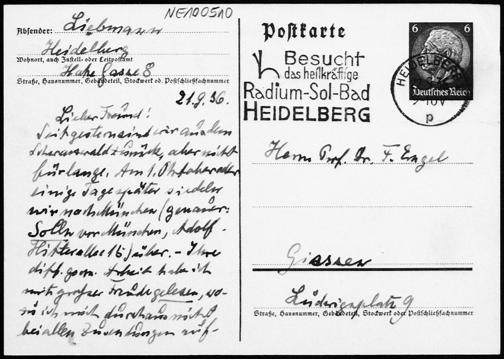 NE100510
Absender: Liebmann
Heidelberg
Wohnort, auch Zustell- oder Leitpostamt
Hohe Gasse 8
Straße, Hausnummer, Gebäudeteil, Stockwerk od. Postschließfachnummer
21.9.36.
Lieber Freund!
Seit gestern sind wir aus dem
Schwarzwald zurück, aber nicht
für lange. Am 1. Oktober oder
einige Tage später siedeln
wir nach München (genauer:
Solln vor München, Adolf-
Hitlerallee 16) über. - Ihre
diff. geom. Arbeit habe ich
mit großer Freude gelesen, wo-
bei allen Zusendungen auf-
Postkarte
Besucht
das heilkräftige
Radium-Sol-Bad
HEIDELBERG
HEIDELBERG
p
6 6
Deutsches Reich
Herrn Prof. Dr. F. Engel
Giessen
Ludwigsplatz 9
Straße, Hausnummer, Gebäudeteil, Stockwerk oder Postschließfachnummer